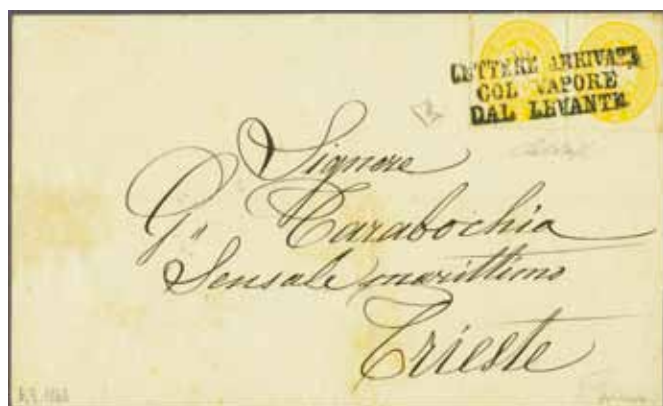 LETTERE ARRIVATE
COL VAPORE
DAL LEVANTE
Signore
G. Carabochia
Sensale marittimo
Trieste